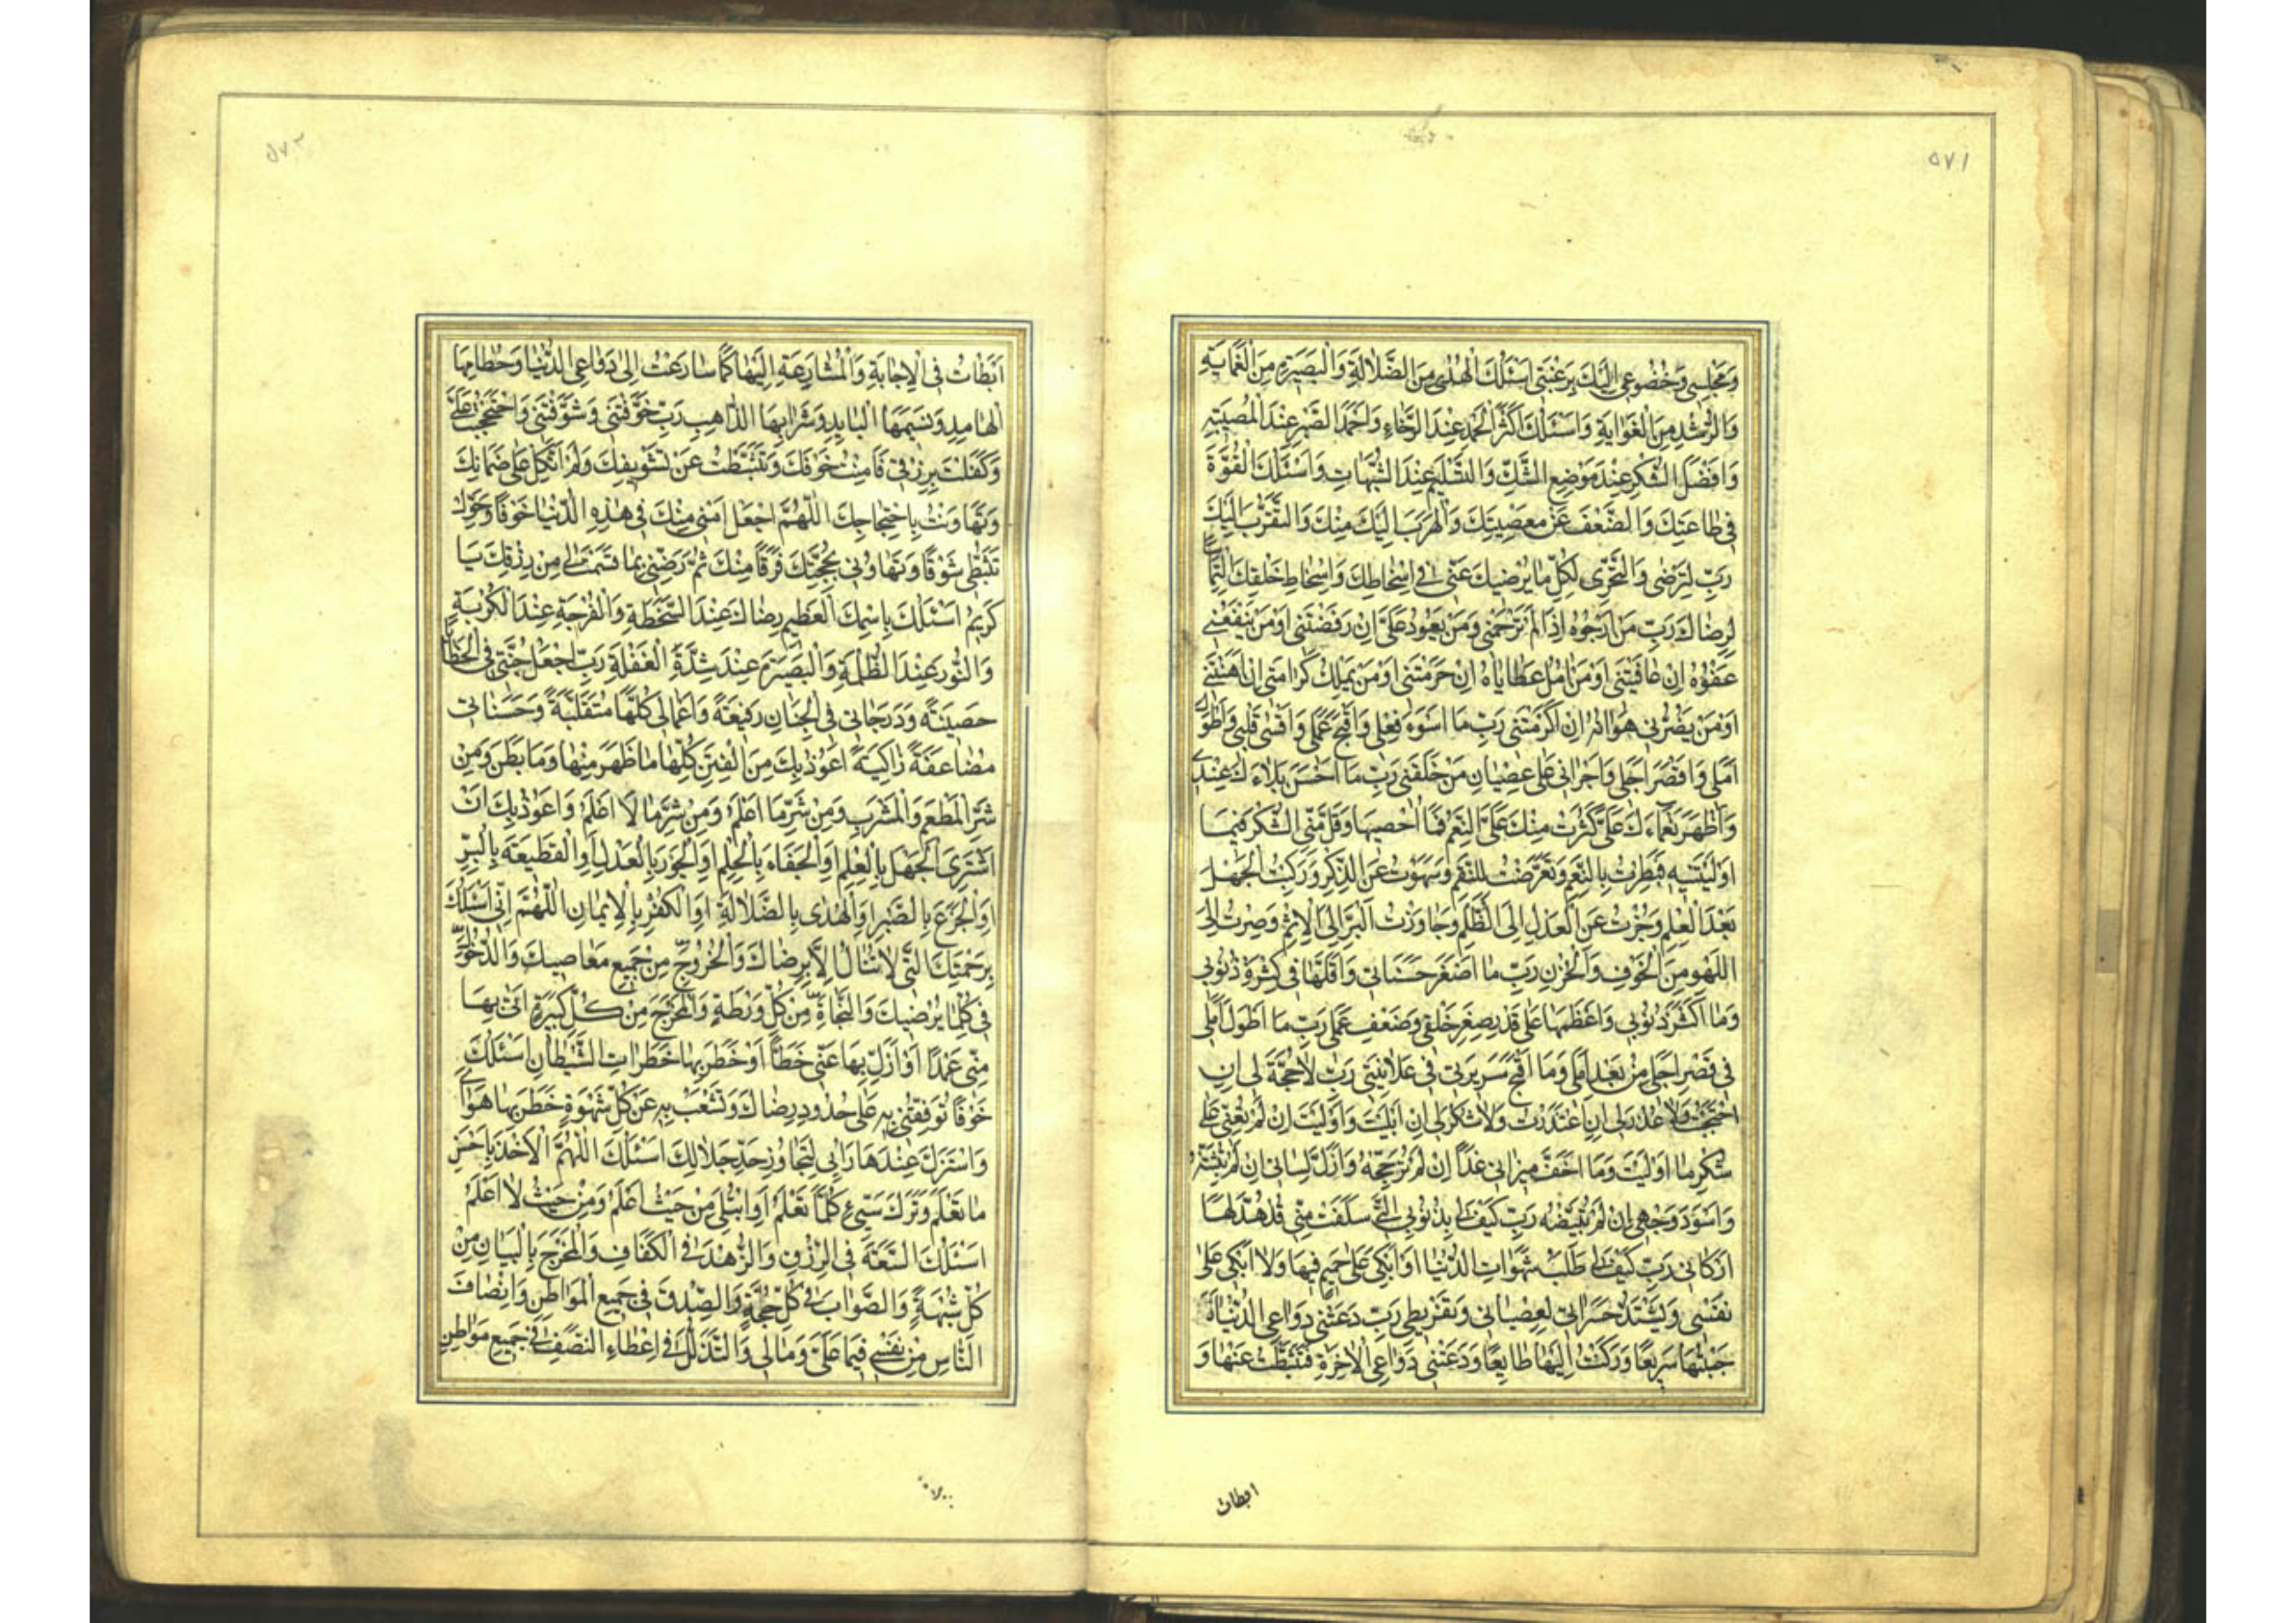 ٥٧١
وَمَجْلِسِي وَخُضُوعِي اِلَيْكَ بِرَغْبَتِي اَسْئَلُكَ الْهُدٰى مِنَ الضَّلَالَةِ وَالْبَصِيرَةَ مِنَ الْعَمَايَةِ
وَالرُّشْدَ مِنَ الْغَوَايَةِ وَاَسْئَلُكَ اَكْثَرَ الْحَمْدِ عِنْدَ الرَّخَاءِ وَاَحْمَدَ الصَّبْرِ عِنْدَ الْمُصِيبَةِ
وَاَفْضَلَ الشُّكْرِ عِنْدَ مَوْضِعِ الشَّكِّ وَالتَّسْلِيمَ عِنْدَ الشُّبُهَاتِ وَاَسْئَلُكَ الْقُوَّةَ
فِي طَاعَتِكَ وَالضَّعْفَ عَنْ مَعْصِيَتِكَ وَالْهَرَبَ اِلَيْكَ مِنْكَ وَالتَّقَرُّبَ اِلَيْكَ
رَبِّ لِتَرْضٰى وَالتَّحَرِّي لِكُلِّ مَا يُرْضِيكَ عَنِّي فِي اِسْخَاطِكَ وَاِسْخَاطِ خَلْقِكَ الْتِمَاسًا
لِرِضَاكَ رَبِّ مَنْ اَرْجُوهُ اِذَا لَمْ تَرْحَمْنِي وَمَنْ يَعُودُ عَلَيَّ اِنْ رَفَضْتَنِي اَوْ مَنْ يَنْفَعُنِي
عَفْوُهُ اِنْ عَاقَبْتَنِي اَوْ مَنْ اٰمُلُ عَطَايَاهُ اِنْ حَرَمْتَنِي اَوْ مَنْ يَمْلِكُ كَرَامَتِي اِنْ اَهَنْتَنِي
اَوْ مَنْ يَضُرُّنِي هَوَانُهُ اِنْ اَكْرَمْتَنِي رَبِّ مَا اَسْوَءَ فِعْلِي وَاَقْبَحَ عَمَلِي وَاَقْسٰى قَلْبِي وَاَطْوَلَ
اَمَلِي وَاَقْصَرَ اَجَلِي وَاَجْرَاَنِي عَلٰى عِصْيَانِ مَنْ خَلَقَنِي رَبِّ مَا اَحْسَنَ بَلَاءَكَ عِنْدِي
وَاَظْهَرَ نَعْمَاءَكَ عَلَيَّ كَثُرَتْ مِنْكَ عَلَيَّ النِّعَمُ فَمَا اُحْصِيهَا وَقَلَّ مِنِّي الشُّكْرُ فِيمَا
اَوْلَيْتَنِيهِ فَبَطِرْتُ بِالنِّعَمِ وَتَعَرَّضْتُ لِلنِّقَمِ وَسَهَوْتُ عَنِ الذِّكْرِ وَرَكِبْتُ الْجَهْلَ
بَعْدَ الْعِلْمِ وَجُزْتُ عَنِ الْعَدْلِ اِلَى الظُّلْمِ وَجَاوَزْتُ الْبِرَّ اِلَى الْاِثْمِ وَصِرْتُ اِلَى
اللَّهْوِ مِنَ الْخَوْفِ وَالْحُزْنِ رَبِّ مَا اَصْغَرَ حَسَنَاتِي وَاَقَلَّهَا فِي كَثْرَةِ ذُنُوبِي
وَمَا اَكْثَرَ ذُنُوبِي وَاَعْظَمَهَا عَلٰى قَدْرِ صِغَرِ خَلْقِي وَضَعْفِ عَمَلِي رَبِّ مَا اَطْوَلَ اَمَلِي
فِي قَصْرِ اَجَلِي مِنْ بُعْدِ اَمَلِي وَمَا اَقْبَحَ سَرِيرَتِي فِي عَلَانِيَتِي رَبِّ لَا حُجَّةَ لِي اِنِ
احْتَجَجْتُ وَلَا عُذْرَ لِي اِنِ اعْتَذَرْتُ وَلَا شُكْرَ لِي اِنْ اَبْلَيْتَ وَاَوْلَيْتَ اِنْ لَمْ تُعِنِّي عَلٰى
شُكْرِ مَا اَوْلَيْتَ وَمَا اَخَفَّ مِيزَانِي غَدًا اِنْ لَمْ تُرَجِّحْهُ وَاَزَلَّ لِسَانِي اِنْ لَمْ تُثَبِّتْهُ
وَاَسْوَدَ وَجْهِي اِنْ لَمْ تُبَيِّضْهُ رَبِّ كَيْفَ لِي بِذُنُوبِي الَّتِي سَلَفَتْ مِنِّي قَدْ هُدَّ لَهَا
اَرْكَانِي رَبِّ كَيْفَ لِي طَلَبُ شَهَوَاتِ الدُّنْيَا اَوْ اَبْكِي عَلٰى حَمِيمٍ فِيهَا وَلَا اَبْكِي عَلٰى
نَفْسِي وَتَشْتَدُّ حَسَرَاتِي لِعِصْيَانِي وَتَفْرِيطِي رَبِّ دَعَتْنِي دَوَاعِي الدُّنْيَا فَاَ
جَبْتُهَا سَرِيعًا وَرَكَنْتُ اِلَيْهَا طَايِعًا وَدَعَتْنِي دَوَاعِي الْاٰخِرَةِ فَتَثَبَّطْتُ عَنْهَا وَ
ابطات
٥٧٢
اَبْطَاْتُ فِي الْاِجَابَةِ وَالْمُسَارَعَةِ اِلَيْهَا كَمَا سَارَعْتُ اِلٰى دَوَاعِي الدُّنْيَا وَحُطَامِهَا
الْهَامِدِ وَنَسِيمِهَا الْبَايِدِ وَشَرَابِهَا الذَّاهِبِ رَبِّ خَوَّفْتَنِي وَشَوَّقْتَنِي وَاحْتَجَجْتَ عَلَيَّ
وَكَفَلْتَ بِرِزْقِي فَاٰمَنْتُ خَوْفَكَ وَتَثَبَّطْتُ عَنْ تَشْوِيقِكَ وَلَمْ اَتَّكِلْ عَلٰى ضَمَانِكَ
وَتَهَاوَنْتُ بِاحْتِجَاجِكَ اَللّٰهُمَّ اجْعَلْ اَمْنِي مِنْكَ فِي هٰذِهِ الدُّنْيَا خَوْفًا وَحَوِّلْ
تَثَبُّطِي شَوْقًا وَتَهَاوُنِي بِحُجَّتِكَ فَرَقًا مِنْكَ ثُمَّ رَضِّنِي بِمَا قَسَمْتَ لِي مِنْ رِزْقِكَ يَا
كَرِيمُ اَسْئَلُكَ بِاسْمِكَ الْعَظِيمِ رِضَاكَ عِنْدَ السَّخْطَةِ وَالْفُرْجَةَ عِنْدَ الْكُرْبَةِ
وَالنُّورَ عِنْدَ الظُّلْمَةِ وَالْبَصِيرَةَ عِنْدَ شِدَّةِ الْغَفْلَةِ رَبِّ اجْعَلْ جُنَّتِي فِي الْخَطَايَا
حَصِينَةً وَدَرَجَاتِي فِي الْجِنَانِ رَفِيعَةً وَاَعْمَالِي كُلَّهَا مُتَقَبَّلَةً وَحَسَنَاتِي
مُضَاعَفَةً زَاكِيَةً اَعُوذُ بِكَ مِنَ الْفِتَنِ كُلِّهَا مَا ظَهَرَ مِنْهَا وَمَا بَطَنَ وَمِنْ
شَرِّ الْمَطْعَمِ وَالْمَشْرَبِ وَمِنْ شَرِّ مَا اَعْلَمُ وَمِنْ شَرِّ مَا لَا اَعْلَمُ وَاَعُوذُ بِكَ اَنْ
اَشْتَرِيَ الْجَهْلَ بِالْعِلْمِ اَوِ الْجَفَاءَ بِالْحِلْمِ اَوِ الْجَوْرَ بِالْعَدْلِ اَوِ الْقَطِيعَةَ بِالْبِرِّ
اَوِ الْجَزَعَ بِالصَّبْرِ اَوِ الْهُدٰى بِالضَّلَالَةِ اَوِ الْكُفْرَ بِالْاِيمَانِ اَللّٰهُمَّ اِنِّي اَسْئَلُكَ
بِرَحْمَتِكَ الَّتِي لَا تُنَالُ اِلَّا بِرِضَاكَ وَالْخُرُوجَ مِنْ جَمِيعِ مَعَاصِيكَ وَالدُّخُولَ
فِي كُلِّ مَا يُرْضِيكَ وَالنَّجَاةَ مِنْ كُلِّ وَرْطَةٍ وَالْمَخْرَجَ مِنْ كُلِّ كَبِيرَةٍ اَتٰى بِهَا
مِنِّي عَمْدًا اَوْ اَزَلَّ بِهَا عَنِّي خَطَأً اَوْ خَطَرَ بِهَا خَطَرَاتُ الشَّيْطَانِ اَسْئَلُكَ
خَوْفًا تُوقِفُنِي بِهِ عَلٰى حُدُودِ رِضَاكَ وَتَشْعَبُ بِهِ عَنْ كُلِّ شَهْوَةٍ خَطَرَ بِهَا هَوَايَ
وَاسْتَزَلَّ عِنْدَهَا رَاْيِي لِيَتَجَاوَزَ حَدَّ جَلَالِكَ اَسْئَلُكَ اللّٰهُمَّ الْاَخْذَ بِاَحْسَنِ
مَا تَعْلَمُ وَتَرْكَ سَيِّئِ كُلِّمَا تَعْلَمُ اَوِ ابْتُلِيَ مِنْ حَيْثُ اَعْلَمُ وَمِنْ حَيْثُ لَا اَعْلَمُ
اَسْئَلُكَ السَّعَةَ فِي الرِّزْقِ وَالزُّهْدَ فِي الْكَفَافِ وَالْمَخْرَجَ بِالْبَيَانِ مِنْ
كُلِّ شُبْهَةٍ وَالصَّوَابَ فِي كُلِّ حُجَّةٍ وَالصِّدْقَ فِي جَمِيعِ الْمَوَاطِنِ وَاِنْصَافَ
النَّاسِ مِنْ نَفْسِي فِيمَا عَلَيَّ وَمَالِي وَالتَّذَلُّلَ فِي اِعْطَاءِ النَّصَفِ فِي جَمِيعِ مَوَاطِنِ